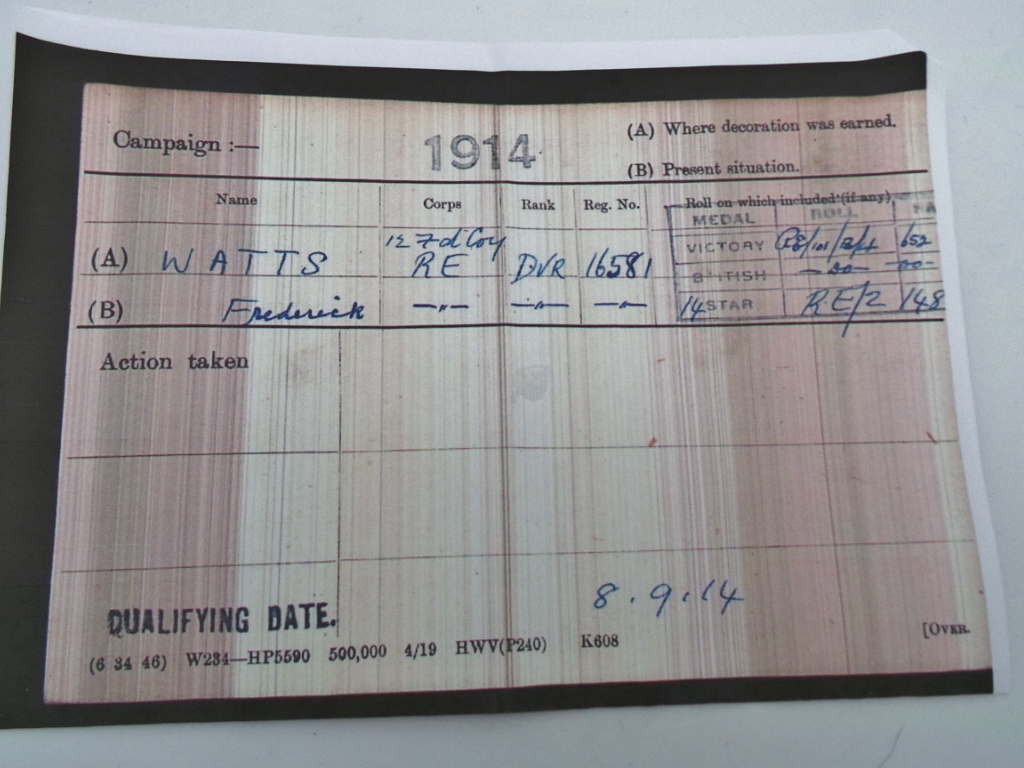 Campaign :— 1914 (A) Where decoration was earned.
(B) Present situation.
Name Corps Rank Reg. No. Roll on which included (if any)
MEDAL ROLL PA
12 Fd Coy VICTORY 652
(A) WATTS RE DVR 16581 BRITISH —do— —do—
(B) Frederick —"— —"— —"— 14 STAR RE/2 148
Action taken
8.9.14
QUALIFYING DATE.
(6 34 46) W234—HP5590 500,000 4/19 HWV(P240) K608 [OVER.